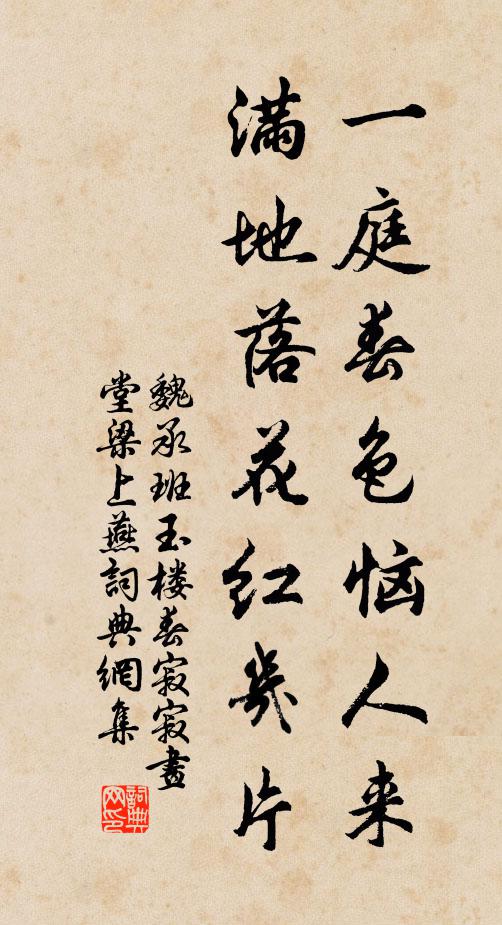 一庭春色恼人来
满地落花红几片
魏承班玉楼春寂寂畫
堂梁上燕詞典網集
詞典网印